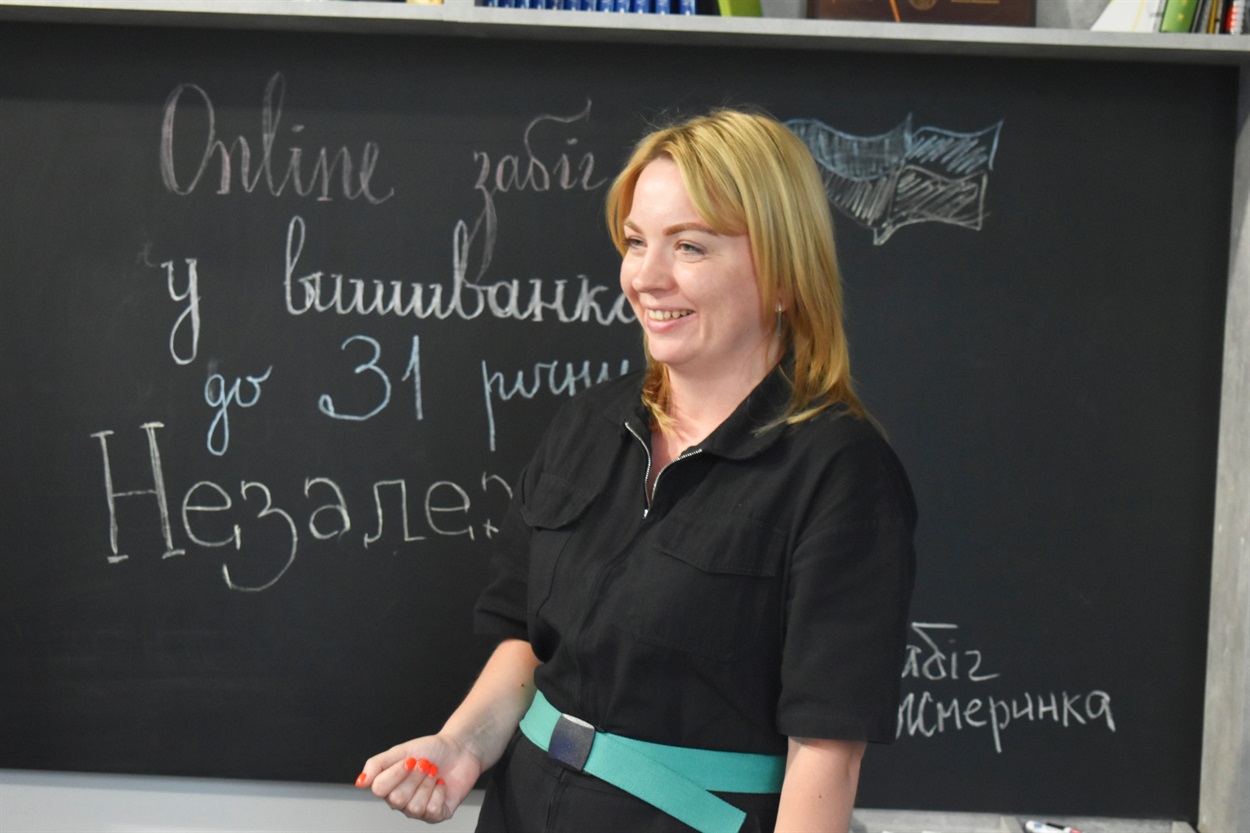 Online забіг
у вишиванк
до 31 річни
Незале
абіг
Жмеринка